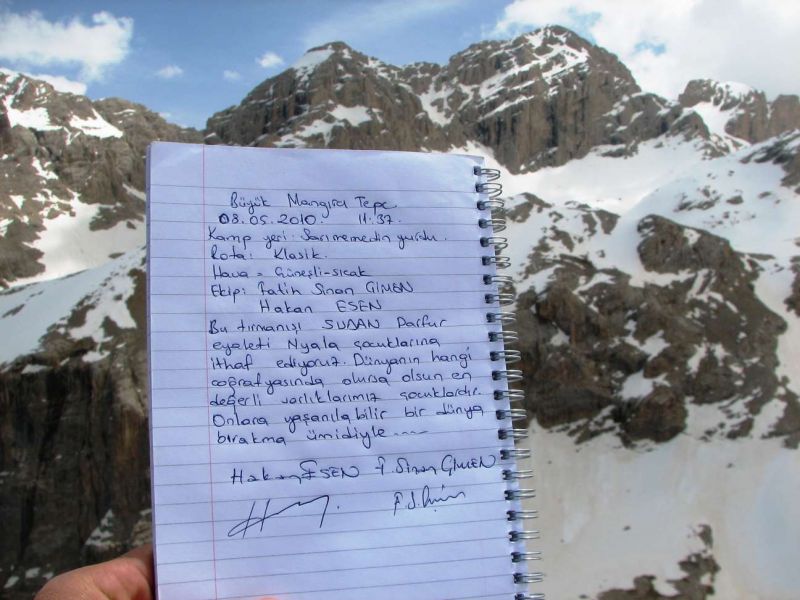 Büyük Mangırcı Tepe
03.05.2010. 11:37.
Kamp yeri: Sarımemedin yurdu.
Rota: Klasik.
Hava = Güneşli-sıcak
Ekip: Fatih Sinan GİMEN
Hakan ESEN
Bu tırmanışı SUDAN Darfur
eyeleti Nyala çocuklarına
ithaf ediyoruz. Dünyanın hangi
coğrafyasında olursa olsun en
değerli varlıklarımız çocuklardır.
Onlara yaşanılabilir bir dünya
bırakma ümidiyle....
Hakan ESEN F. Sinan GİMEN